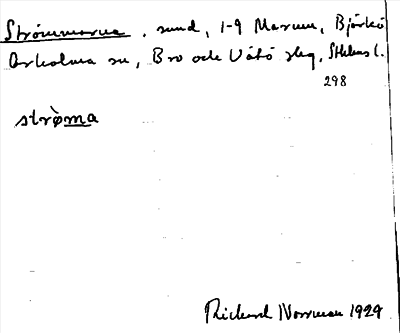 Strömmarna, sund, 1-9 Marum, Björkö
Arholma sn, Bro och Vätö slg, Sthlms l.
298
strò̀ma
Richard Norrman 1929